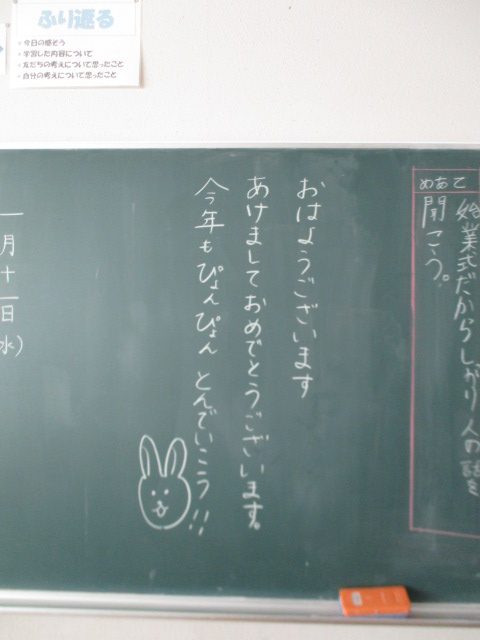 ふり返る
・今日の感そう
・学習した内容について
・友だちの考えについて思ったこと
・自分の考えについて思ったこと
めあて
始業式だからしっかり人の話を
聞こう。
おはようございます
あけましておめでとうございます。
今年もぴょんぴょん とんでいこう!!
一月十一日(水)